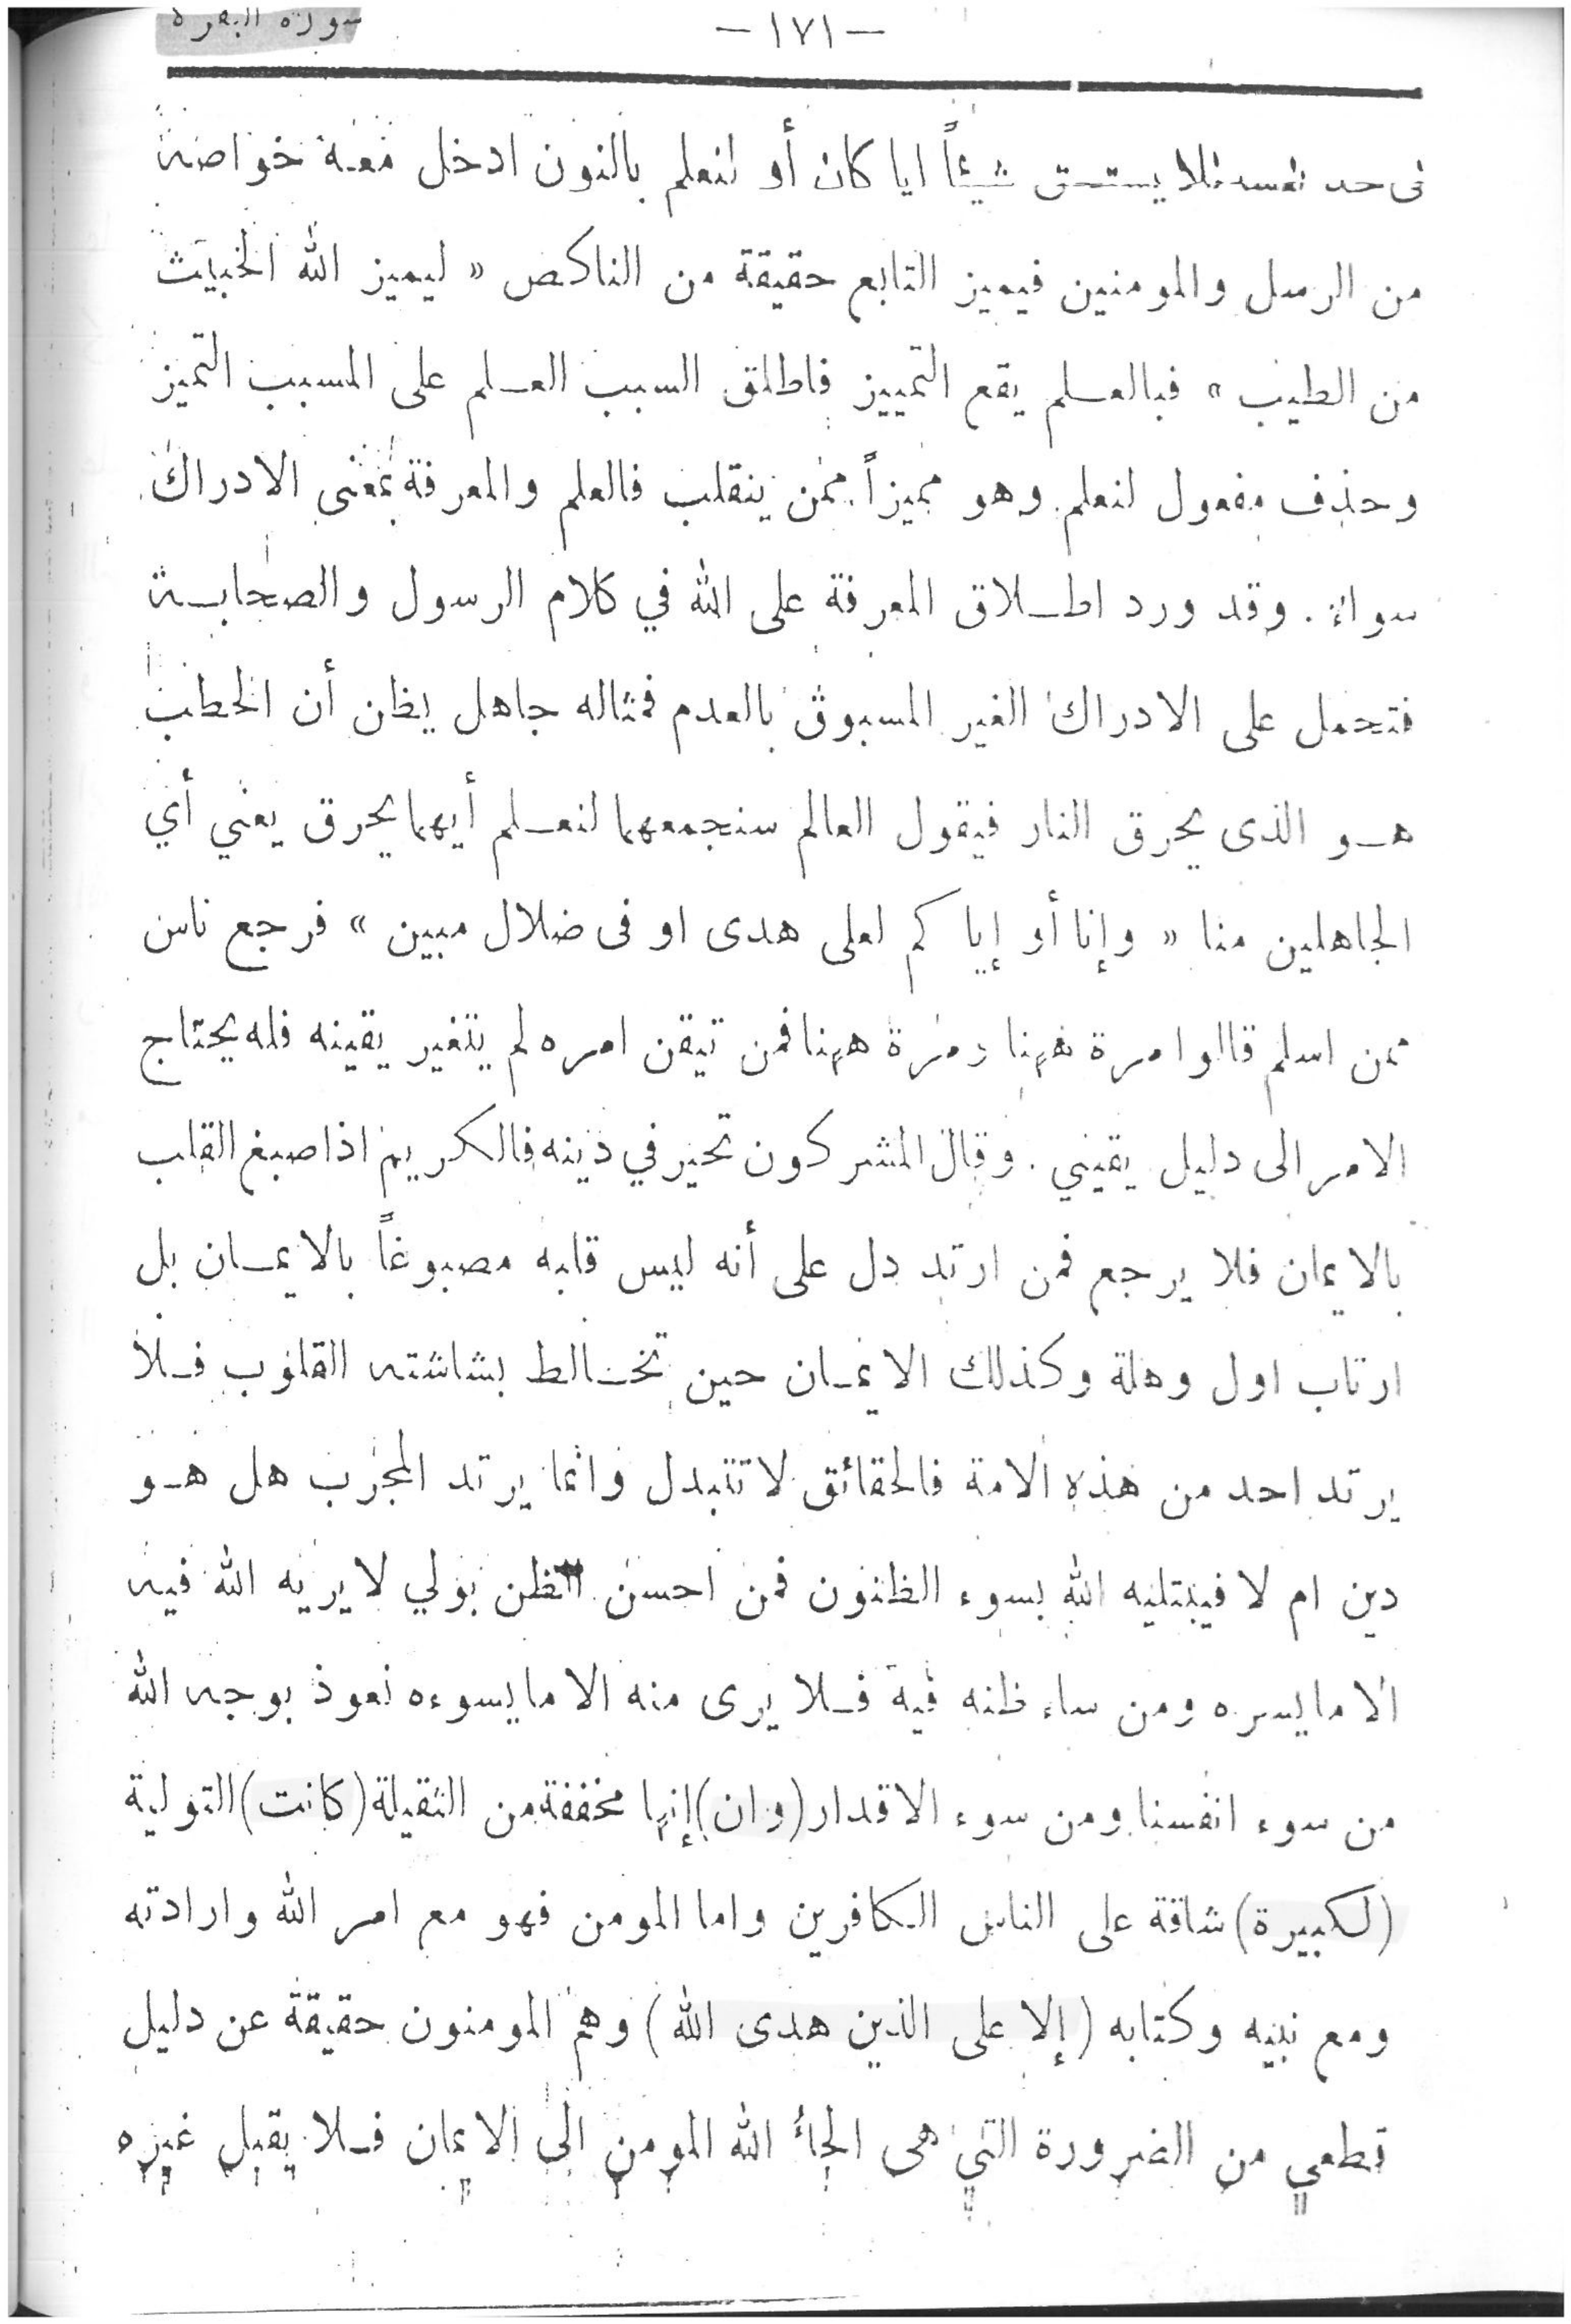 سورة البقرة
— ١٧١ —
فى حد نفسه فلا يستحق شيئاً ايا كان أو لنعلم بالنون ادخل معه خواصه
من الرسل والمومنين فيميز التابع حقيقة من الناكص « ليميز الله الخبيث
من الطيب » فبالعلم يقع التمييز فاطلق السبب العلم على المسبب التميز
وحذف مفعول لنعلم وهو مميزاً ممن ينقلب فالعلم والمعرفة بمعنى الادراك
سواء . وقد ورد اطلاق المعرفة على الله في كلام الرسول والصحابة
فتحمل على الادراك الغير المسبوق بالعدم فمثاله جاهل يظن أن الحطب
هو الذى يحرق النار فيقول العالم سنجمعهما لنعلم أيهما يحرق يعني أي
الجاهلين منا « وإنا أو إياكم لعلى هدى او فى ضلال مبين » فرجع ناس
ممن اسلم قالوا مرة ههنا ومرة ههنا فمن تيقن امره لم يتغير يقينه فله يحتاج
الامر الى دليل يقيني . وقال المشركون تحير في دينه فالكريم اذا صبغ القلب
بالايمان فلا يرجع فمن ارتد دل على أنه ليس قلبه مصبوغاً بالايمان بل
ارتاب اول وهلة وكذلك الايمان حين تخالط بشاشته القلوب فلا
يرتد احد من هذه الامة فالحقائق لا تتبدل وانما يرتد المجرب هل هو
دين ام لا فيبتليه الله بسوء الظنون فمن احسن الظن بولي لا يريه الله فيه
الا ما يسره ومن ساء ظنه فيه فلا يرى منه الا ما يسوءه نعوذ بوجه الله
من سوء انفسنا ومن سوء الاقدار (وان) إنها مخففة من الثقيلة (كانت) التولية
(لكبيرة) شاقة على الناس الكافرين واما المومن فهو مع امر الله وارادته
ومع نبيه وكتابه (إلا على الذين هدى الله) وهم المومنون حقيقة عن دليل
قطعي من الضرورة التي هى الجأ الله المومن الى الايمان فلا يقبل غيره